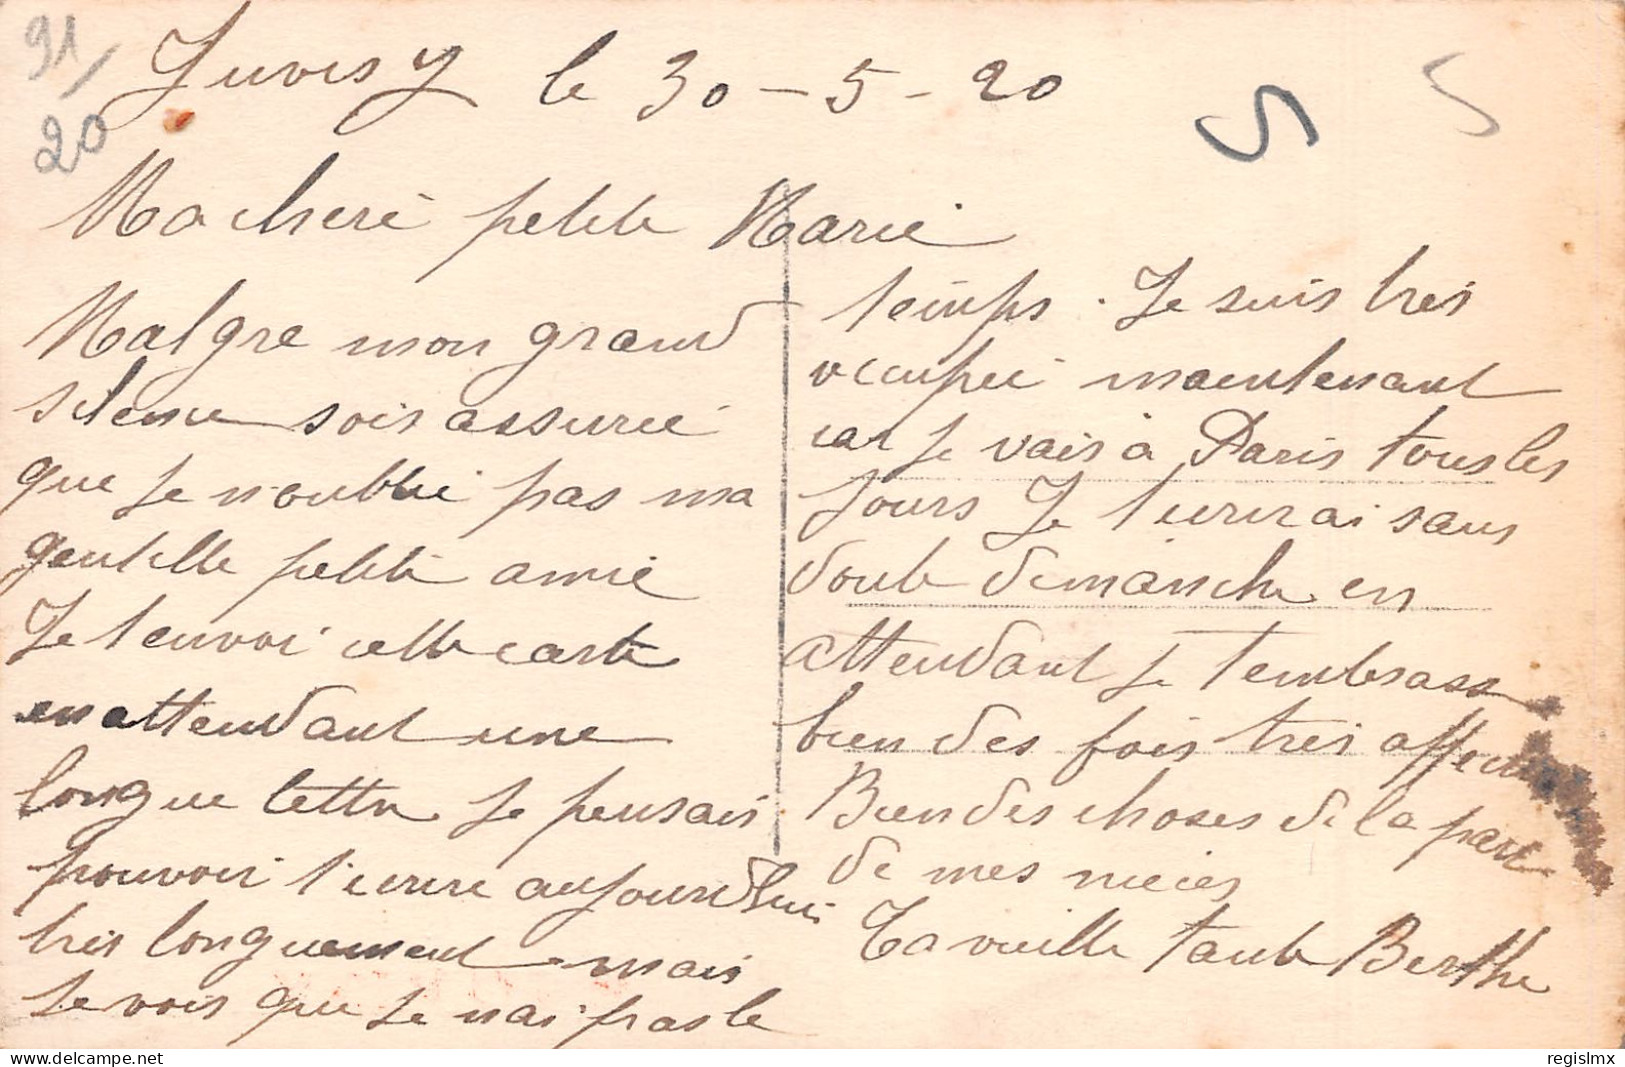 91/
20
Juvisy le 30-5-20
5
Ma cherè petite Marie
Malgre mon grand
silence sois assureé
que je n oublie pas ma
gentille petite amie
Je t envoi cette carte
en attendant une
longue lettre je pensais
pouvoir t ecrire aujourdhui
très longuement mais
je vois que je n ai pas le
temps. Je suis très
occupeé maintenant
car je vais à Paris tous les
jours Je t ecrirai sans
doute dimanche en
attendant je t embrasse
bien des fois très affect
Bien des choses de la part
de mes nieces
Ta vieille tante Berthe
delcampe.net
regislmx